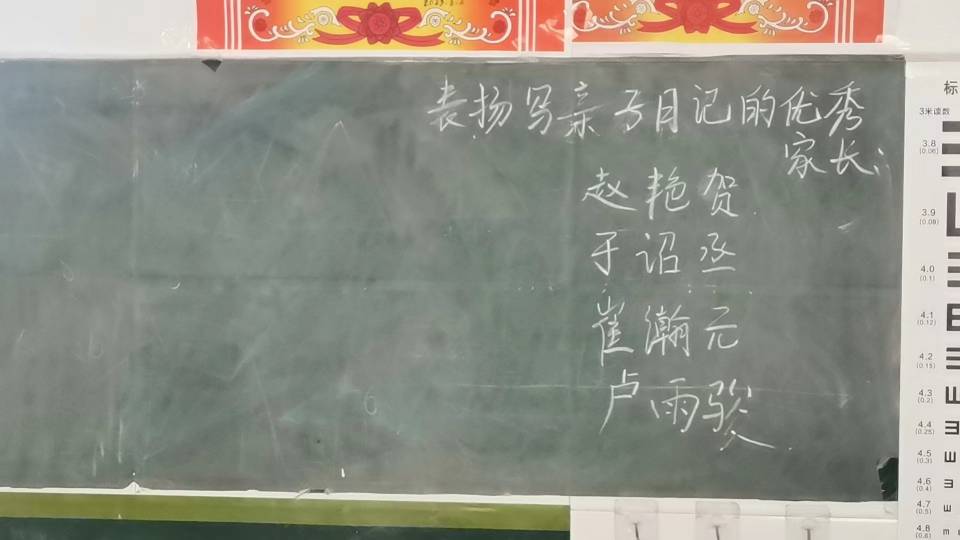 表扬写亲子日记的优秀
家长:
赵艳贺
于诏丞
崔瀚元
卢雨骏
标
3米读数
3.8
(0.06)
3.9
(0.08)
4.0
(0.1)
4.1
(0.12)
4.2
(0.15)
4.3
(0.2)
4.4
(0.25)
4.5
(0.3)
4.6
(0.4)
4.7
(0.5)
4.8
(0.6)